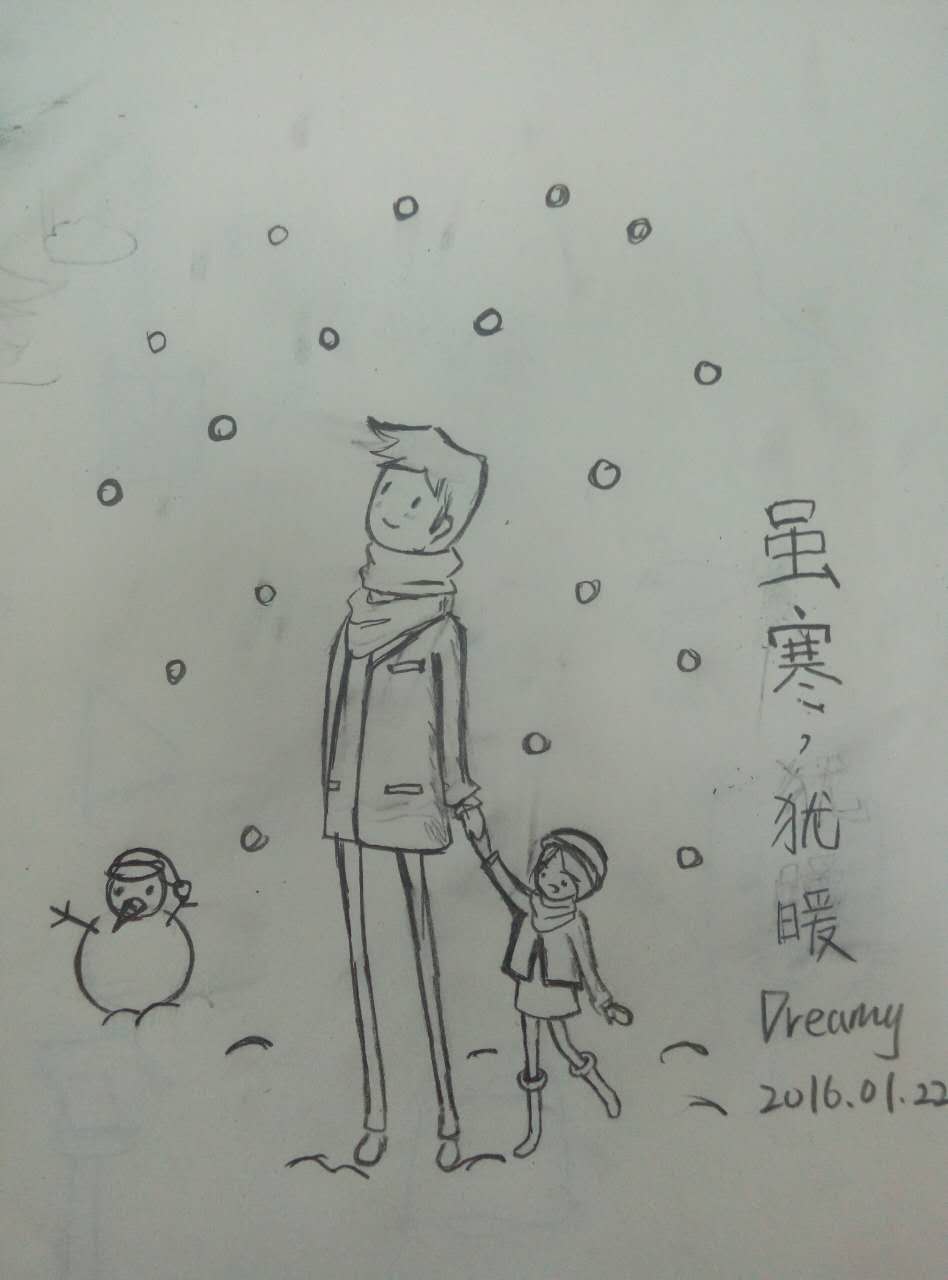 虽寒，犹暖
Dreamy
2016.01.22